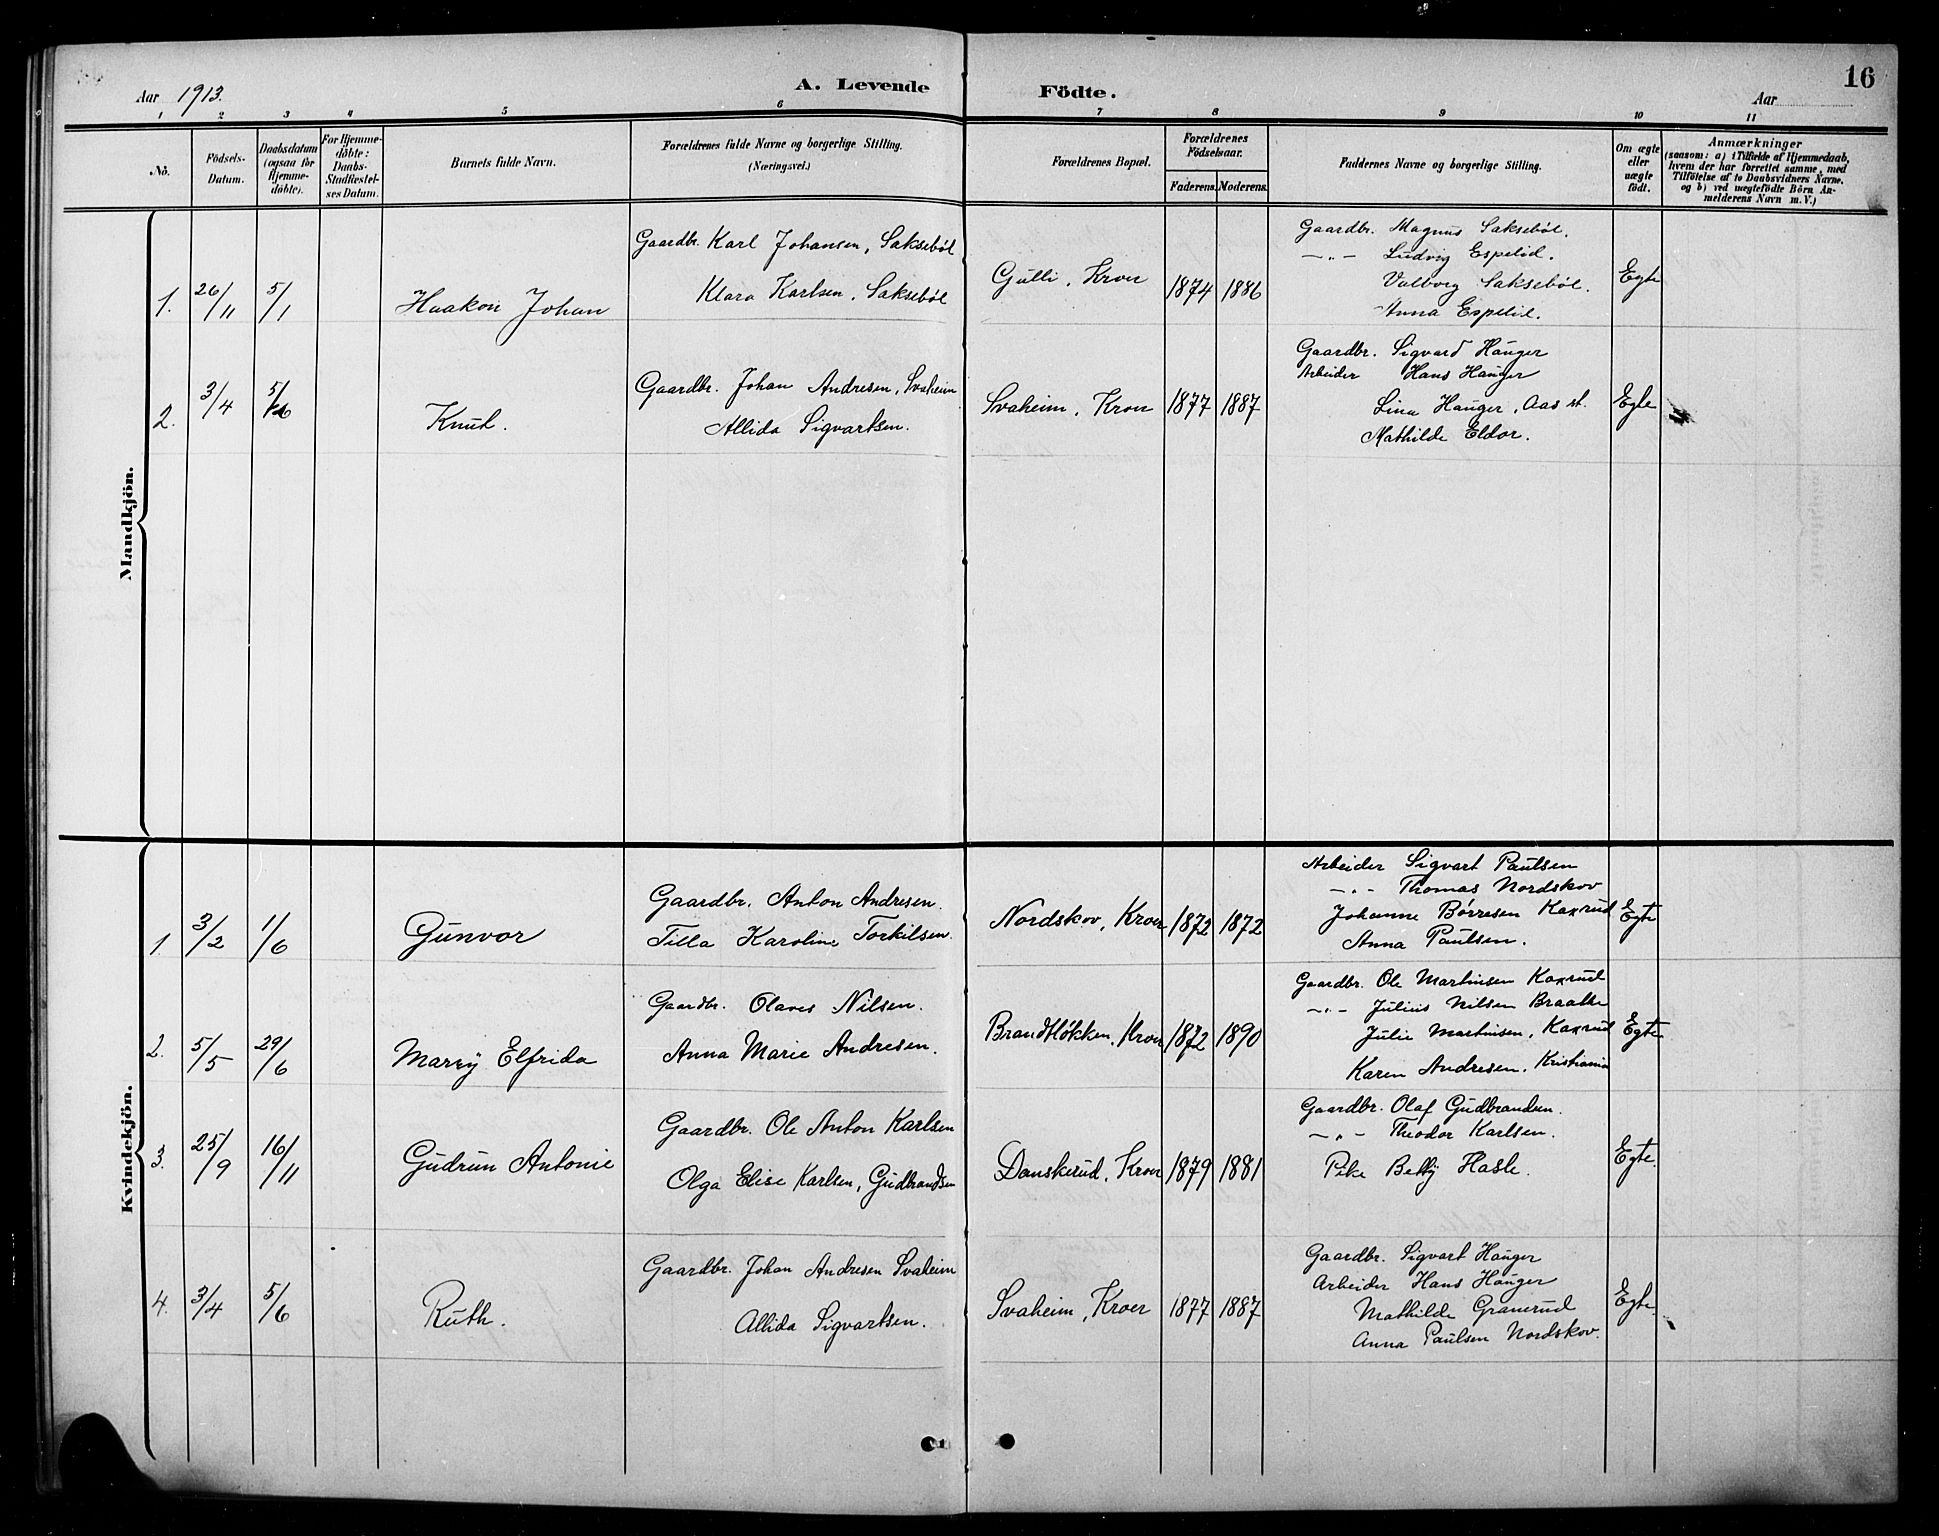 16
Aar 1913. A. Levende Födte. Aar
1 2 3 4 5 6 7 8 9 10 11
No. Födsels-Datum. Daabsdatum (ogsaa for Hjemme-döbte). For Hjemme-döbte: Daabs-Stadfæstel-ses Datum. Barnets fulde Navn. Forældrenes fulde Navne og borgerlige Stilling. (Næringsvei.) Forældrenes Bopæl. Forældrenes Födselsaar. Faderens. Moderens. Faddernes Navne og borgerlige Stilling. Om ægte eller uægte födt. Anmærkninger (saasom: a) i Tilfælde af Hjemmedaab, hvem der har forrettet samme, med Tilföielse af to Daabsvidners Navne, og b) ved uægtefödte Börn An-melderens Navn m. V.)
Mandkjön.
1. 26/11 5/1 Haakon Johan
Gaardbr. Karl Johansen, Saksebøl
Klara Karlsen, Saksebøl
Gulli, Kroer 1874 1886
Gaardbr. Magnus Saksebøl.
—"— Ludvig Espelid.
Valborg Saksebøl.
Anna Espelid.
Egte
2. 3/4 5/6 Knut.
Gaardbr. Johan Andresen, Svaheim
Allida Sigvartsen.
Svaheim, Kroer 1877 1887
Gaardbr. Sigvard Hauger
Arbeider Hans Hauger
Lina Hauger, Aas st.
Mathilde Eldor.
Egte
Kvindekjön.
1. 3/2 1/6 Gunvor
Gaardbr. Anton Andresen.
Tilla Karoline Torkilsen.
Nordskov, Kroer 1872 1872
Arbeider Sigvart Paulsen
—"— Thomas Nordskov
Johanne Børresen Kaxrud
Anna Paulsen.
Egte
2. 5/5 29/6 Marry Elfrida
Gaardbr. Olaves Nilsen.
Anna Marie Andresen.
Brandtløkken, Kroer 1872 1890
Gaardbr. Ole Martinsen Kaxrud
—"— Julius Nilsen Braatte
Julie Martinsen, Kaxrud
Karen Andresen, Kristiania
Egte
3. 25/9 16/11 Gudrun Antonie
Gaardbr. Ole Anton Karlsen
Olga Elise Karlsen, Gudbrandsen
Danskerud, Kroer 1879 1881
Gaardbr. Olaf Gudbrandsen.
—"— Theodor Karlsen.
Pike Betty Hasle.
Egte.
4. 3/4 5/6 Ruth.
Gaardbr. Johan Andresen Svaheim
Allida Sigvartsen.
Svaheim, Kroer 1877 1887
Gaardbr. Sigvart Hauger
Arbeider Hans Hauger
Mathilde Granerud
Anna Paulsen Nordskov.
Egte.